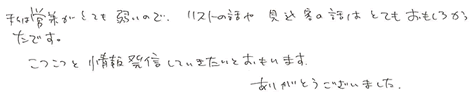 私は営業がとても弱いので、リストの話や見込客の話はとてもおもしろかっ
たです。
こつこつと情報発信していきたいとおもいます。
ありがとうございました。